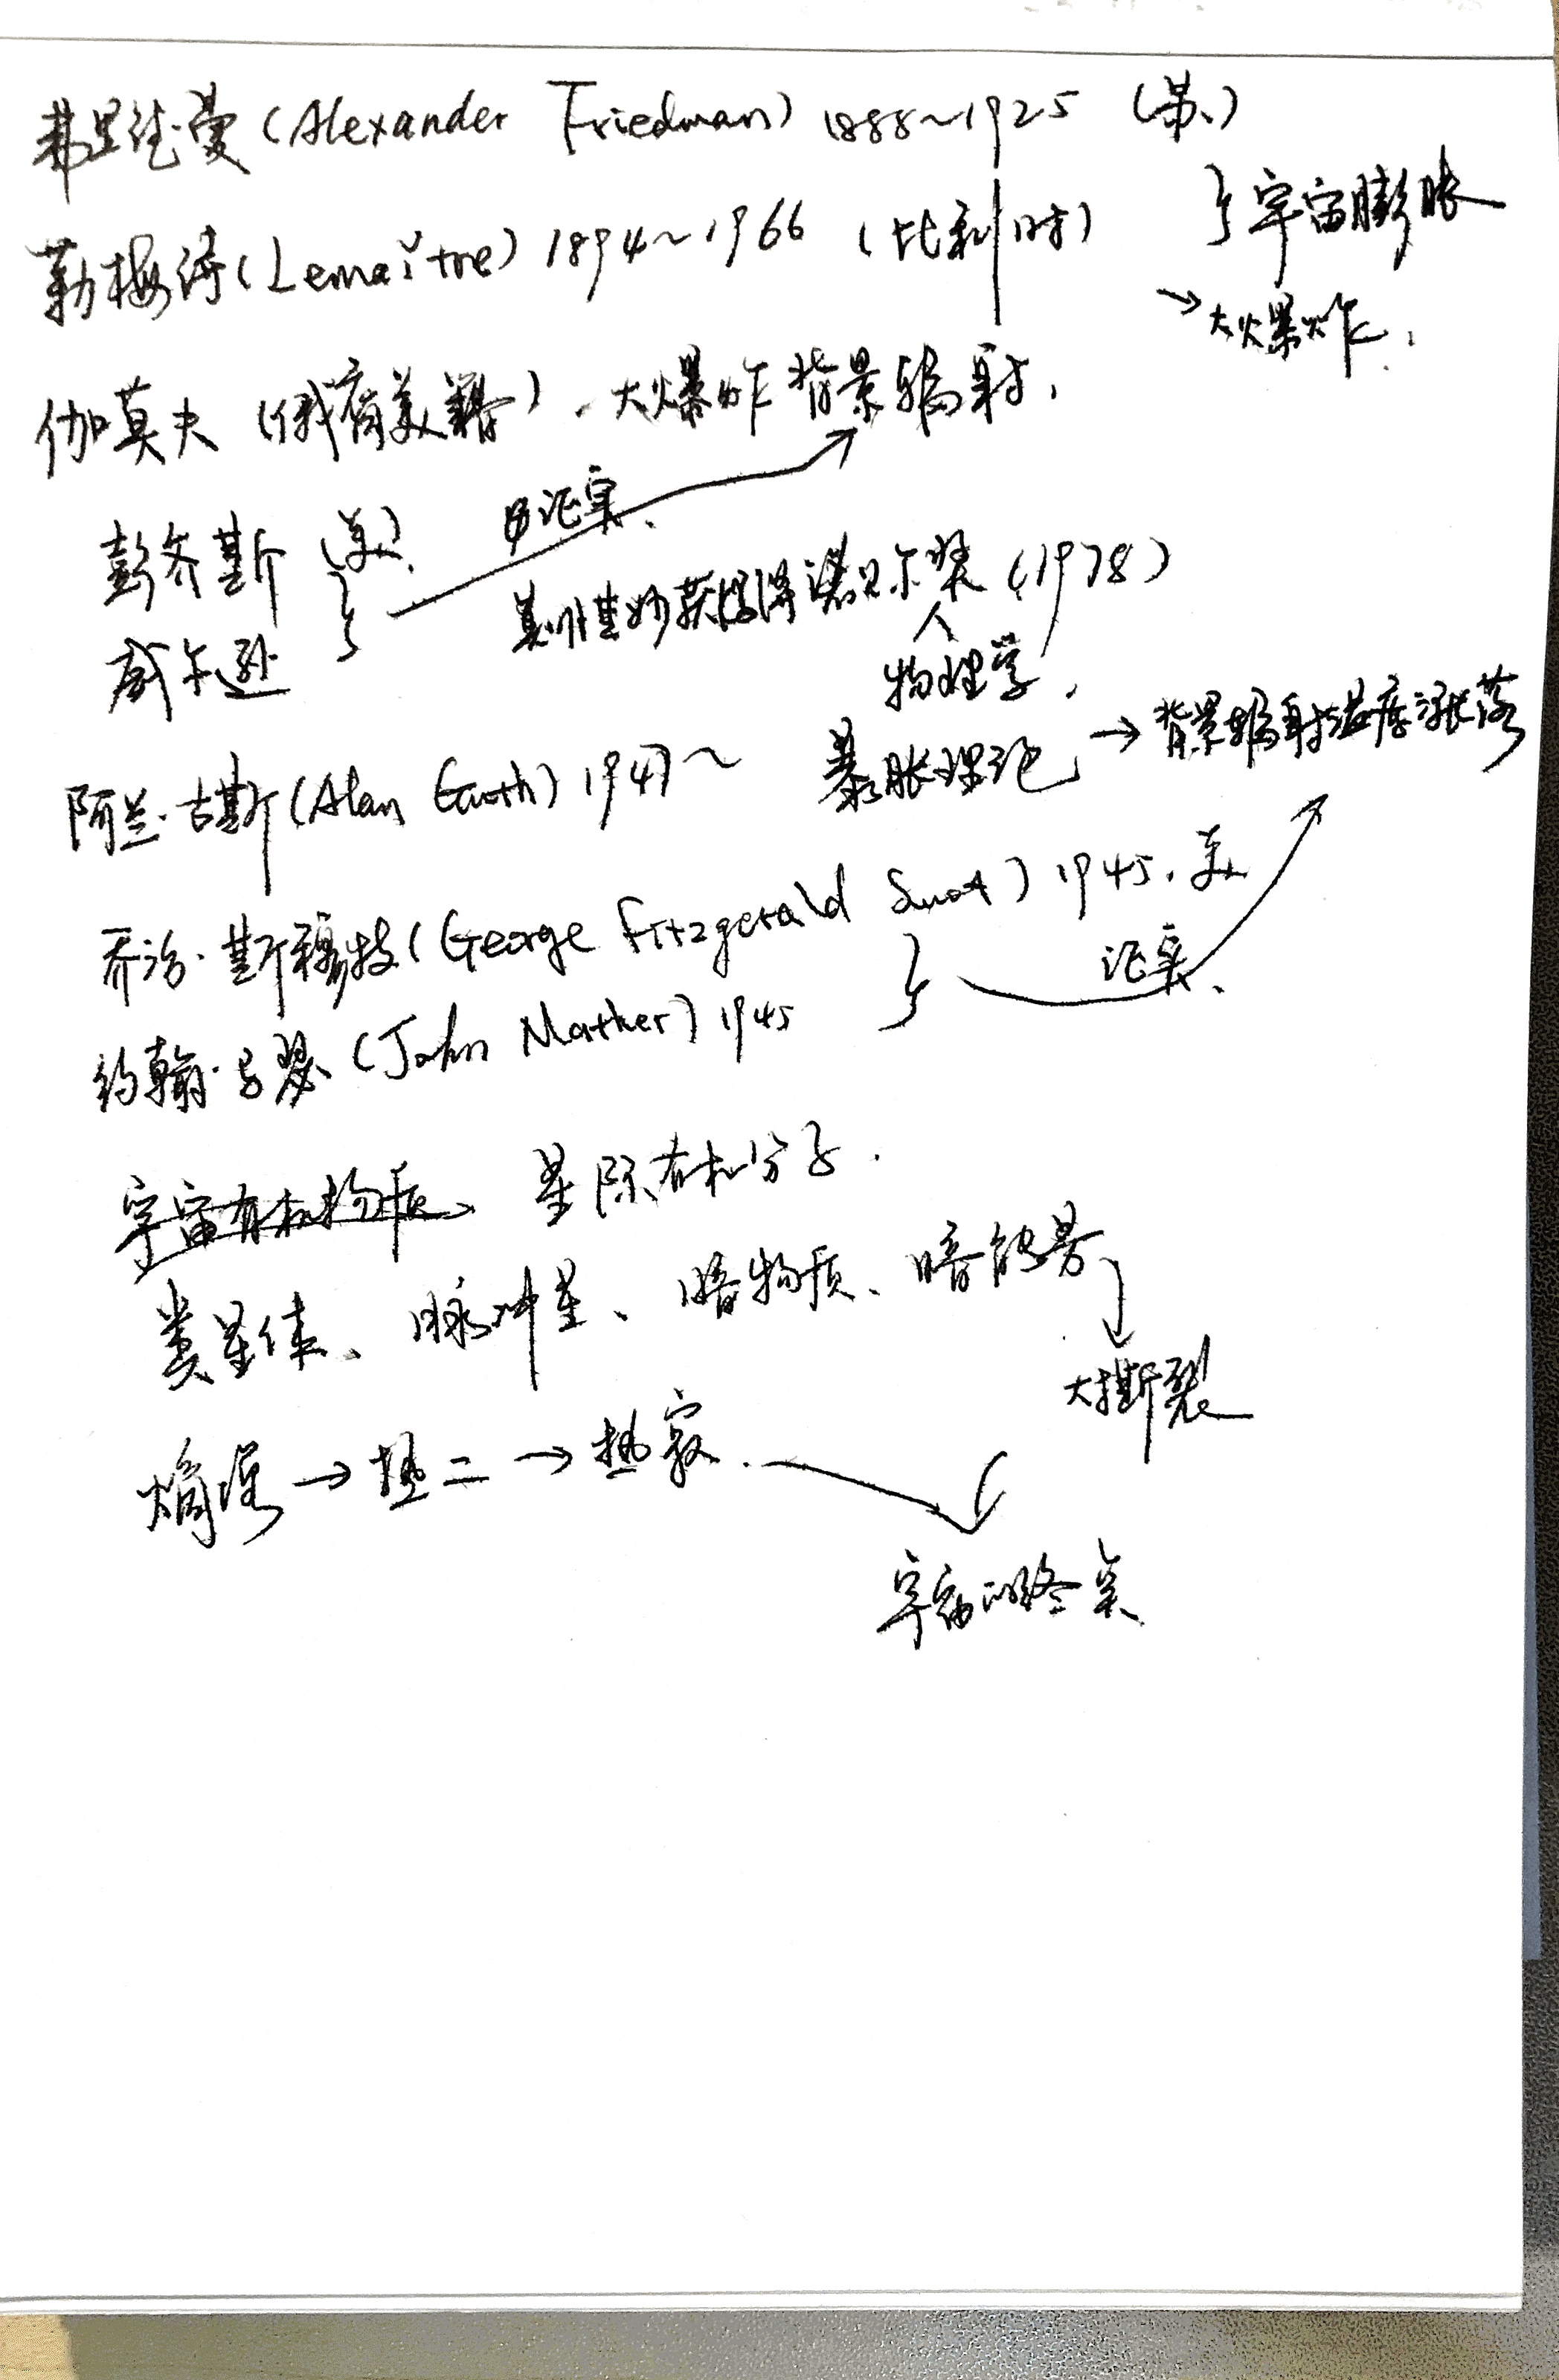 弗里德曼(Alexander Friedman) 1888~1925 (苏)
} 宇宙膨胀
勒梅特(Lemaître) 1894~1966 (比利时)
→大爆炸.
伽莫夫(俄裔美籍). 大爆炸背景辐射.
彭齐斯(美) 证实.
威尔逊 } 获得诺贝尔奖(1978)
物理学.
阿兰·古斯(Alan Guth) 1947~ 暴胀理论→背景辐射温度涨落
乔治·斯穆特(George Fitzgerald Smoot) 1945. 美
证实.
约翰·马瑟(John Mather) 1945 }
宇宙有机物质、星际有机分子.
类星体、脉冲星、暗物质、暗能量
大撕裂
熵增→热二→热寂.
宇宙的终矣